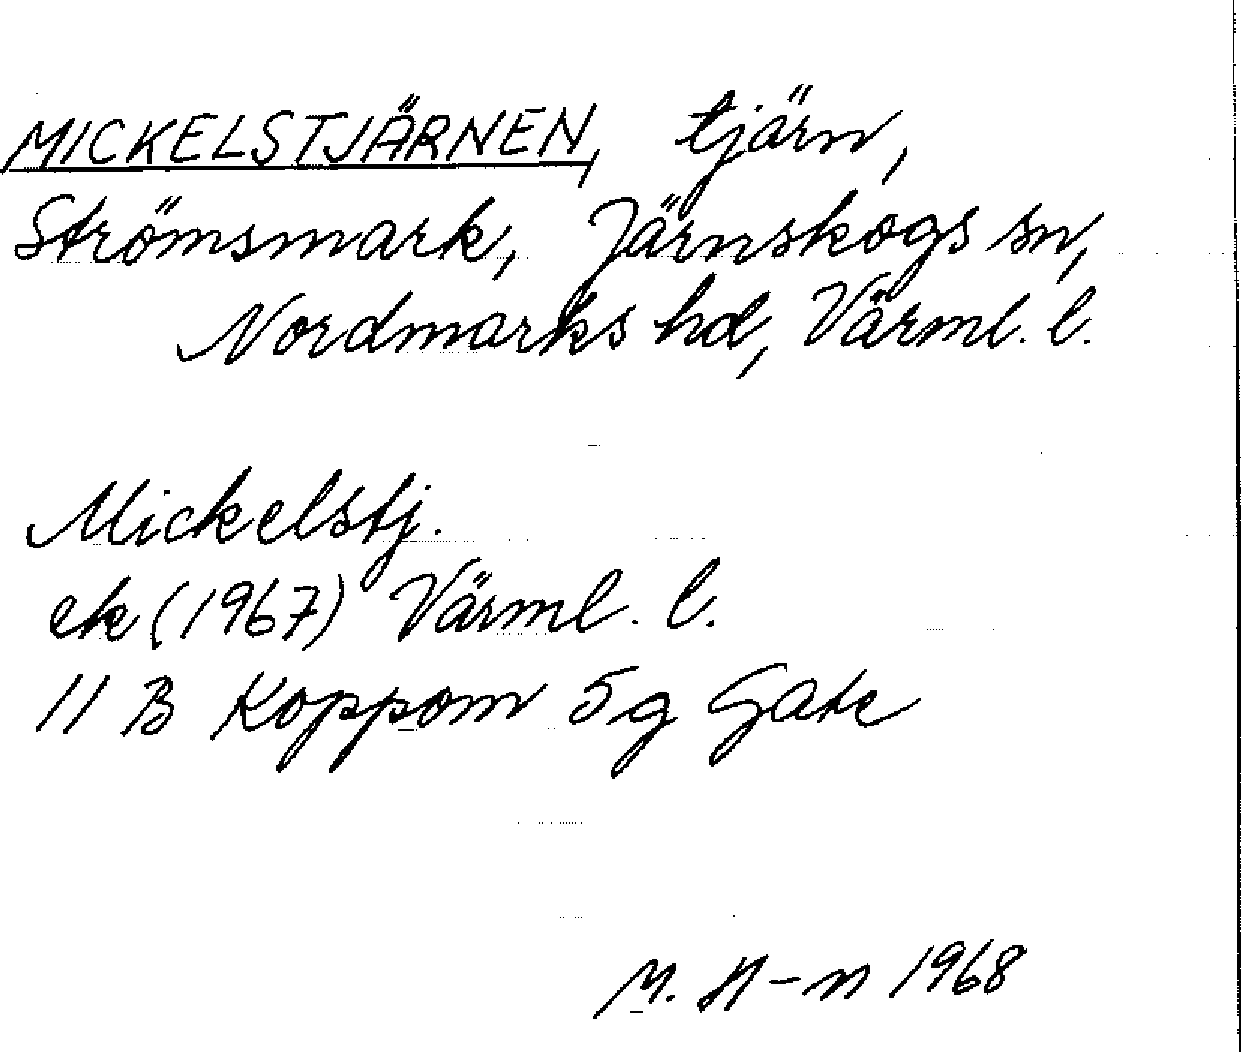 MICKELSTJÄRNEN, tjärn,
Strömsmark, Järnskogs sn,
Nordmarks hd, Värml. l.
Mickelstj.
ek (1967) Värml. l.
11 B Koppom 5g Gate
M. H-n 1968